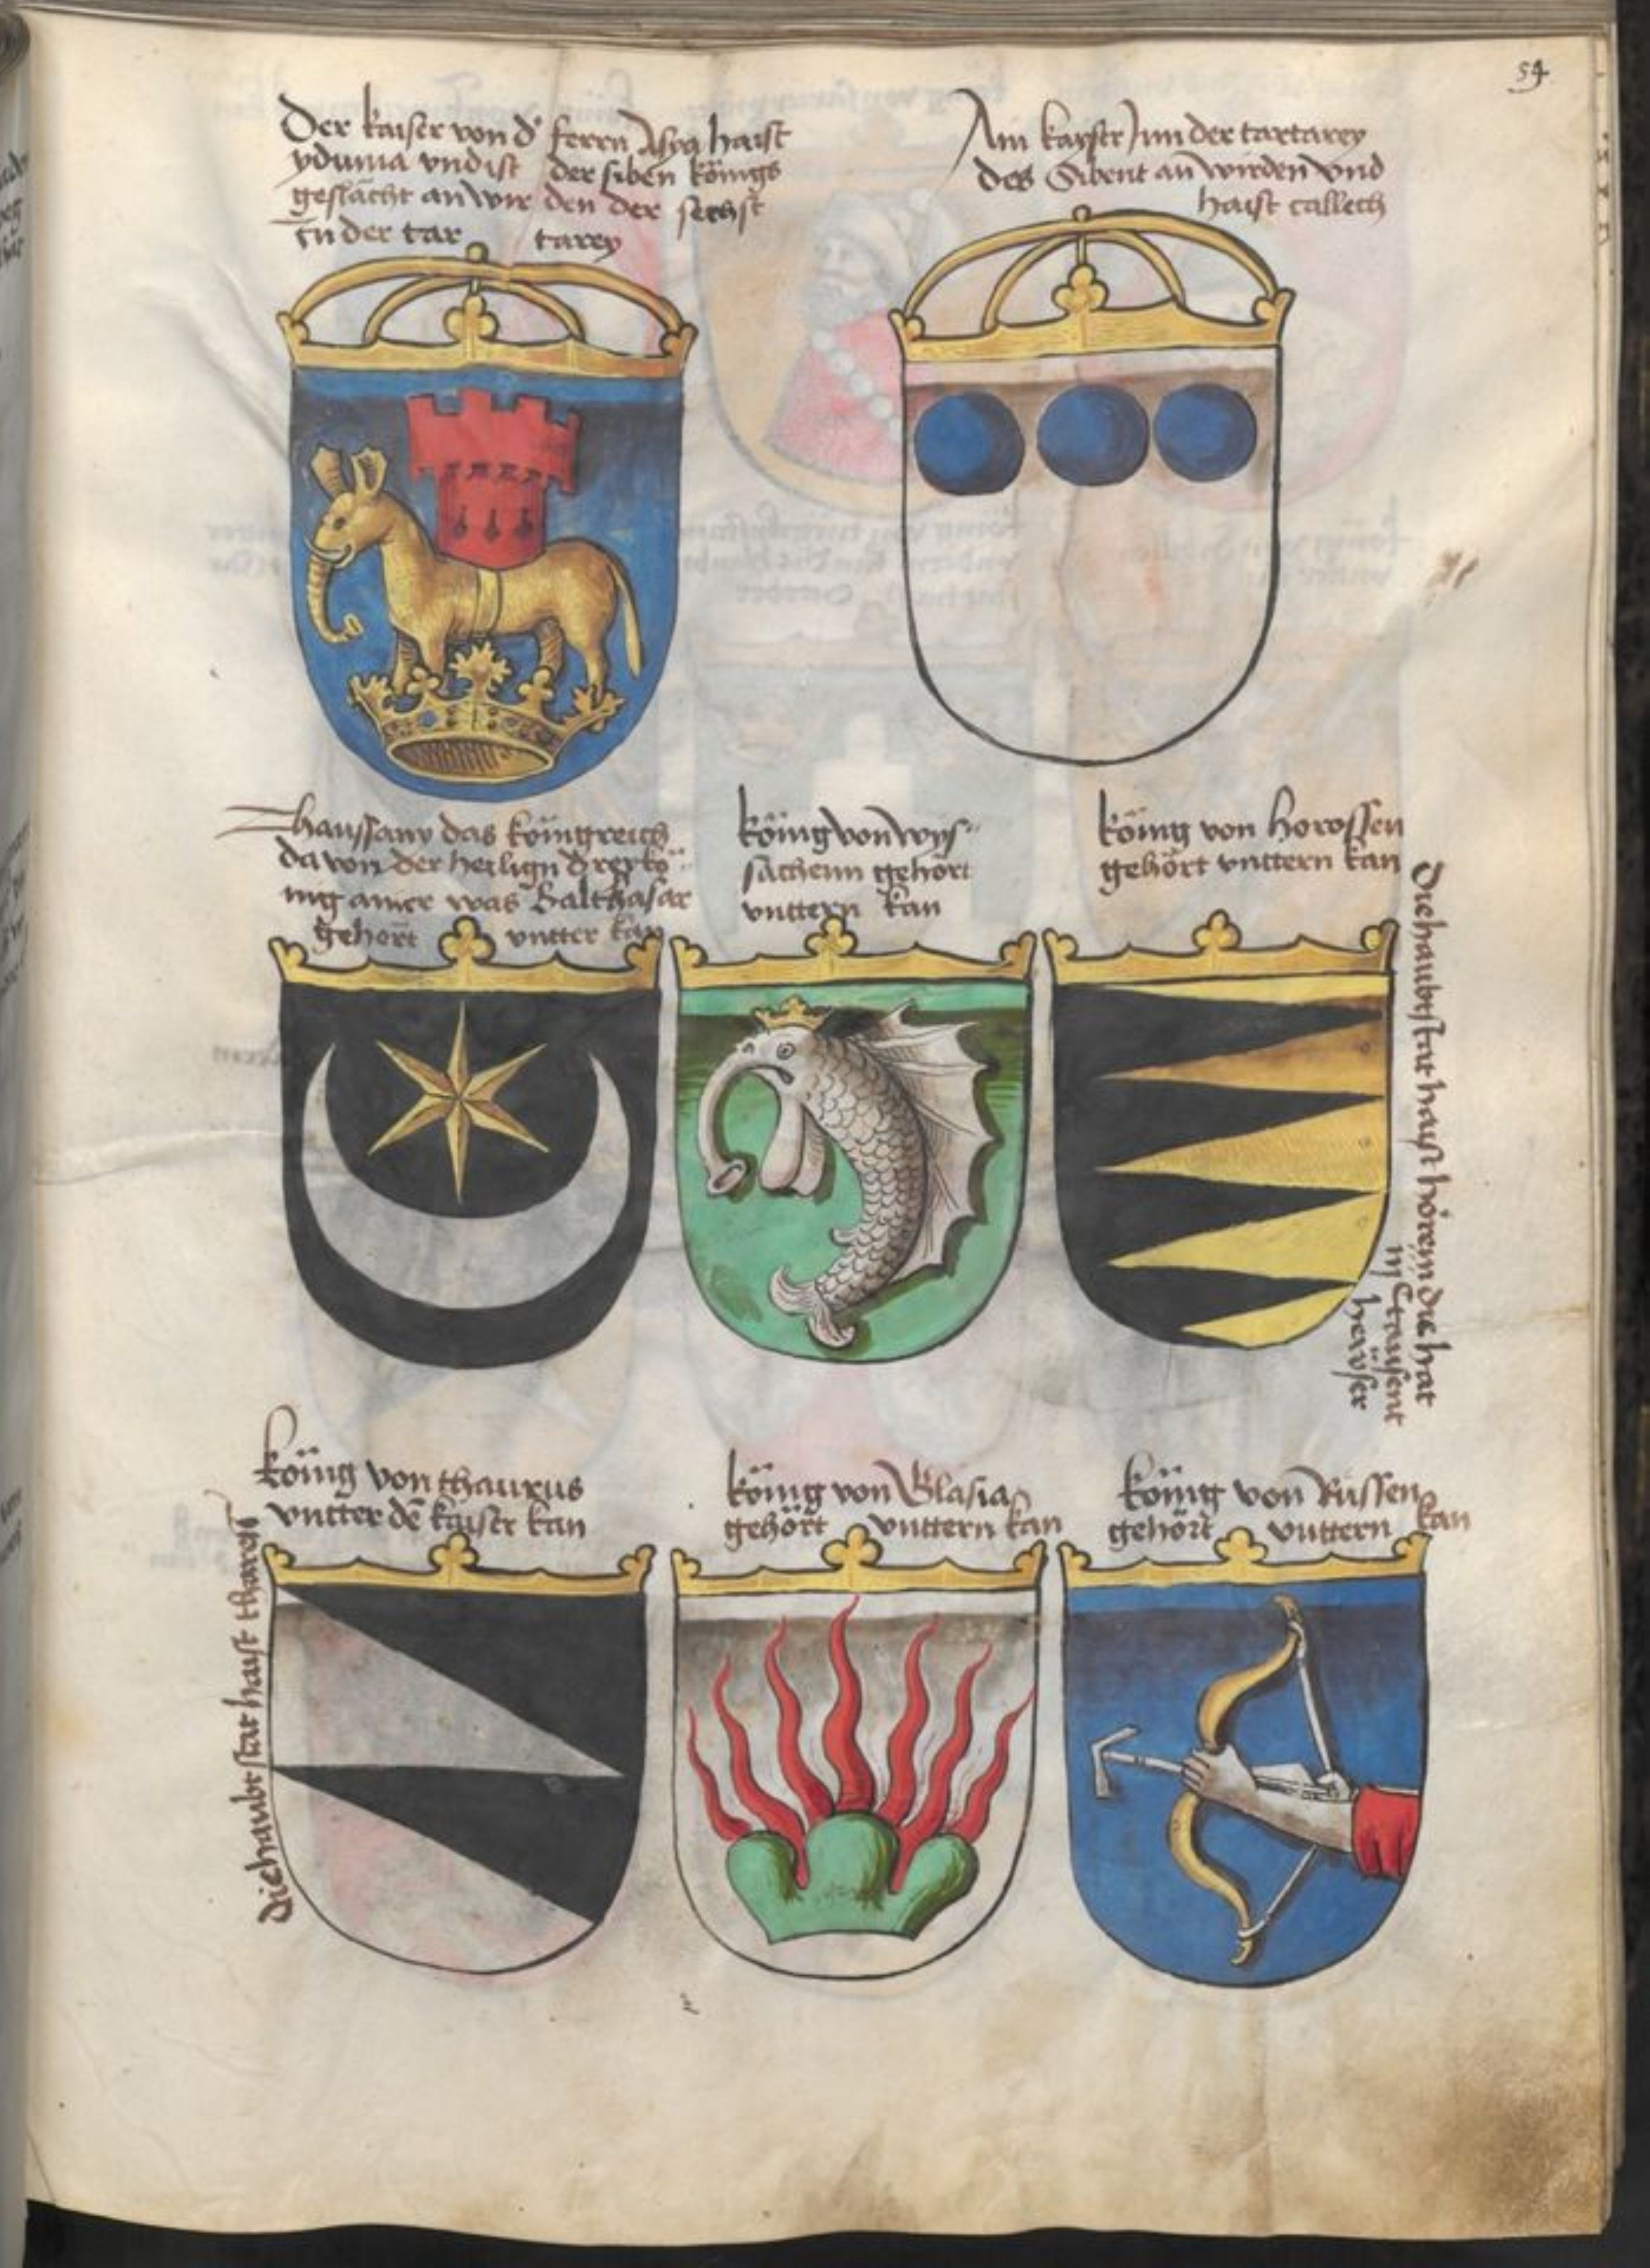 54
Der kaiser von d' ferrn Asya haist
yduma vnd ist der siben königs
geslächt an wir den der sechst
in der tar tarey
Ain kayser Jnn der tartarey
des Sibent an wirden vnd
haist callech
Thaussany das köingreich
da von der heilign dreykö
nig ainer was Balthasar
gehört vntter kan
köing von wyſ=
sachenn gehört
vnttern kan
köing von horossen
gehört vnttern kan
Die haubtstat haist horem die hat
iij Ctausent
hewser
köing von thauxus
vntter dē kaiser kan
Die haubt stat haist thareis
köing von Blasia
gehört vnttern kan
köing von Rüssen
gehört vnttern kan